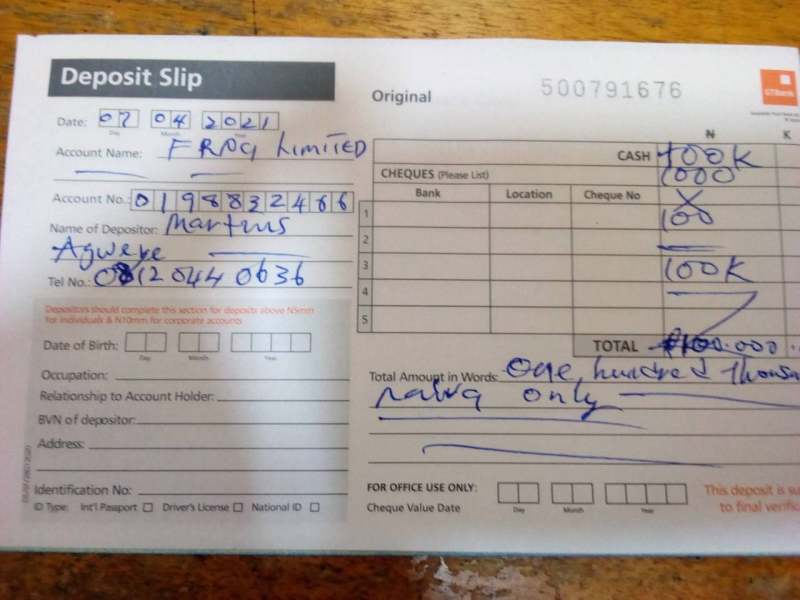 Deposit Slip
Original
500791676
GTBank
Date: 07 04 2021
Day Month Year
Account Name: FRPG LIMITED
Account No.: 0198832466
Name of Depositor: Martins
Agweye
Tel No.: 08120440636
Depositors should complete this section for deposits above N5mm
for individuals & N10mm for corporate accounts
Date of Birth:
Day Month Year
Occupation:
Relationship to Account Holder:
BVN of depositor:
Address:
Identification No:
ID Type: Int'l Passport Driver's License National ID
N K
CASH 100K
CHEQUES (Please List) 1000
Bank Location Cheque No X
1 100
2
3 100K
4
5
TOTAL 100.000.
Total Amount in Words: One hundred Thousa
naira only
FOR OFFICE USE ONLY:
Cheque Value Date
Day Month Year
This deposit is su
to final verific